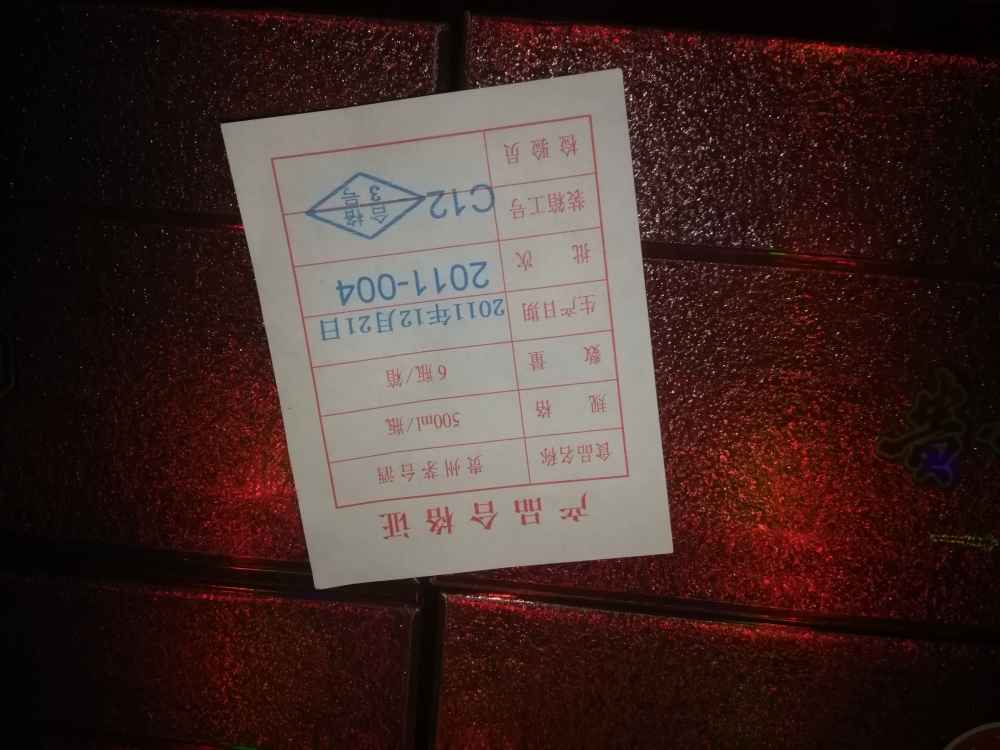 产品合格证
食品名称 贵州茅台酒
规格 500ml/瓶
数量 6瓶/箱
生产日期 2011年12月21日
批次 2011-004
装箱工号 C12
检验员 合格
3号